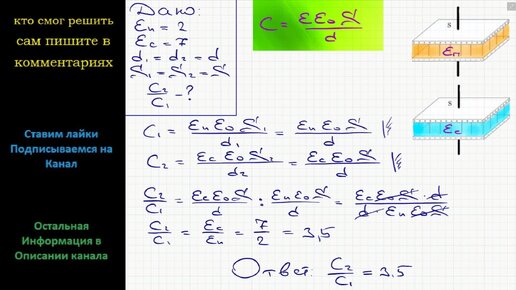 кто смог решить
сам пишите в
комментариях
Ставим лайки
Подписываемся на
Канал
Остальная
Информация в
Описании канала
Дано:
εп = 2
εс = 7
d₁ = d₂ = d
S₁ = S₂ = S
C₂/C₁ - ?
C = εε₀S/d
C₁ = εпε₀S₁/d₁ = εпε₀S/d
C₂ = εсε₀S₂/d₂ = εсε₀S/d
C₂/C₁ = εсε₀S/d : εпε₀S/d = εсε₀S·d/d·εпε₀S
C₂/C₁ = εс/εп = 7/2 = 3,5
Ответ: C₂/C₁ = 3.5
s
εп
s
εс